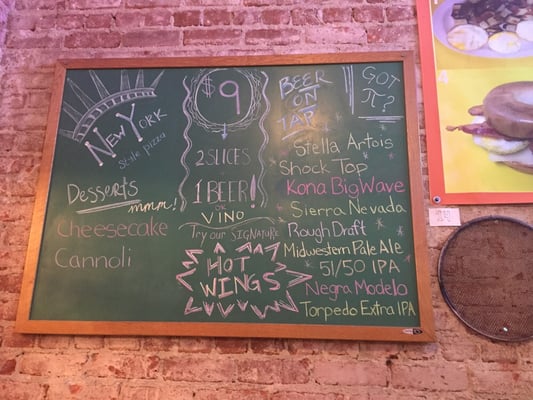 New York
style pizza
Desserts
mmm!
Cheesecake
Cannoli
$9
2 SLICES
1 BEER!
or
VINO
Try our SIGNATURE
HOT
WINGS
BEER
ON
TAP
GOT
π?
Stella Artois
Shock Top
Kona Big Wave
Sierra Nevada
Rough Draft
Midwestern Pale Ale
51/50 IPA
Negra Modelo
Torpedo Extra IPA
4